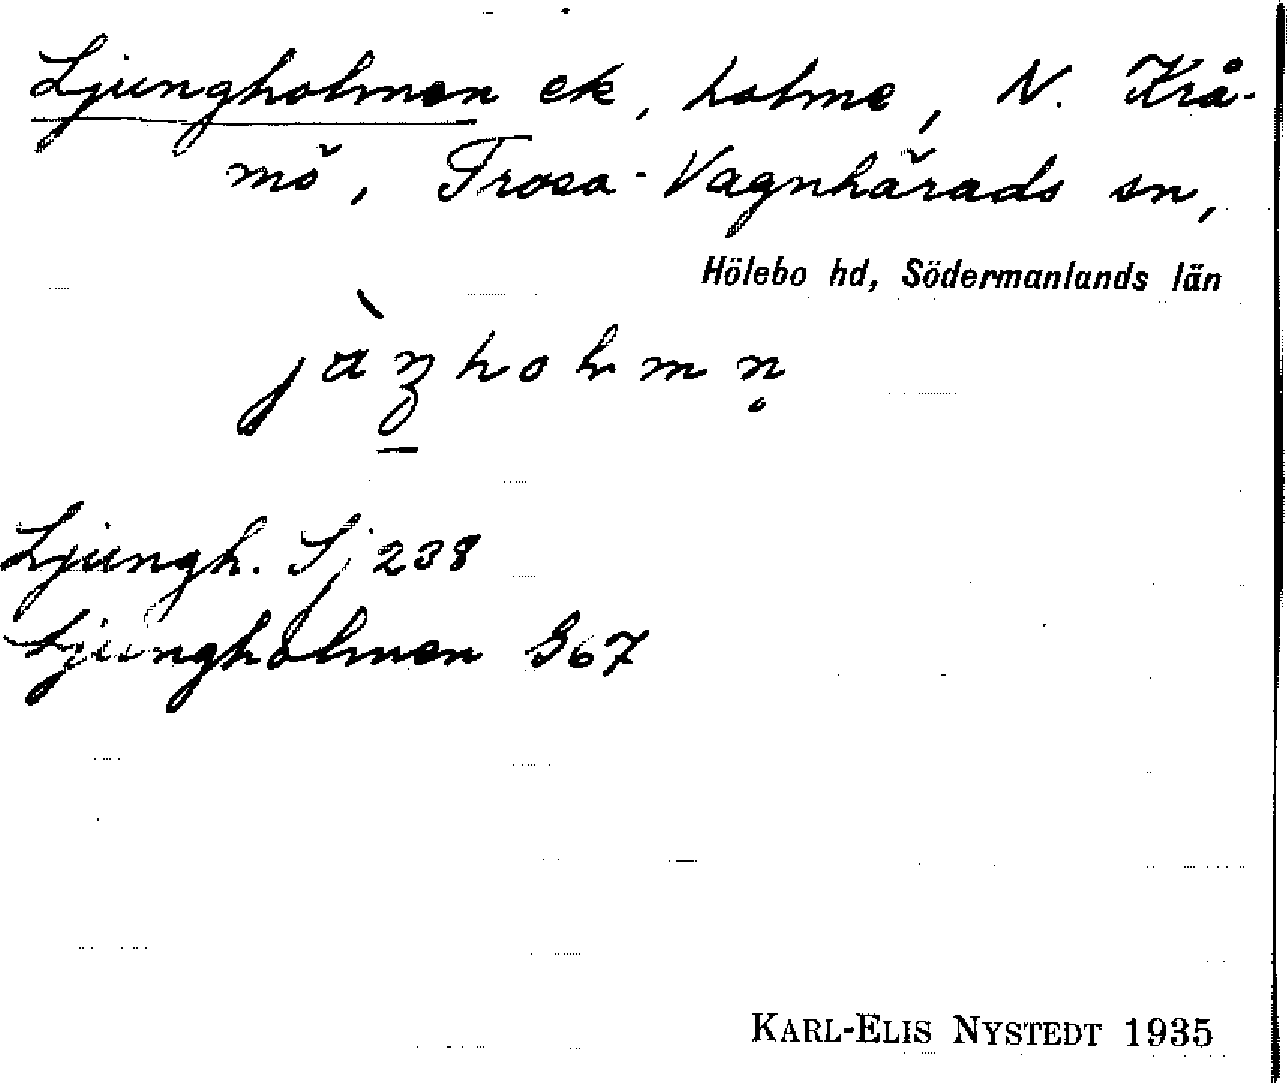 Ljungholmen ek, holme, N. Krå-
mö, Trosa-Vagnhärads sn,
Hölebo hd, Södermanlands län
Ljungh. Sj 238
Ljungholmen G67
KARL-ELIS NYSTEDT 1935